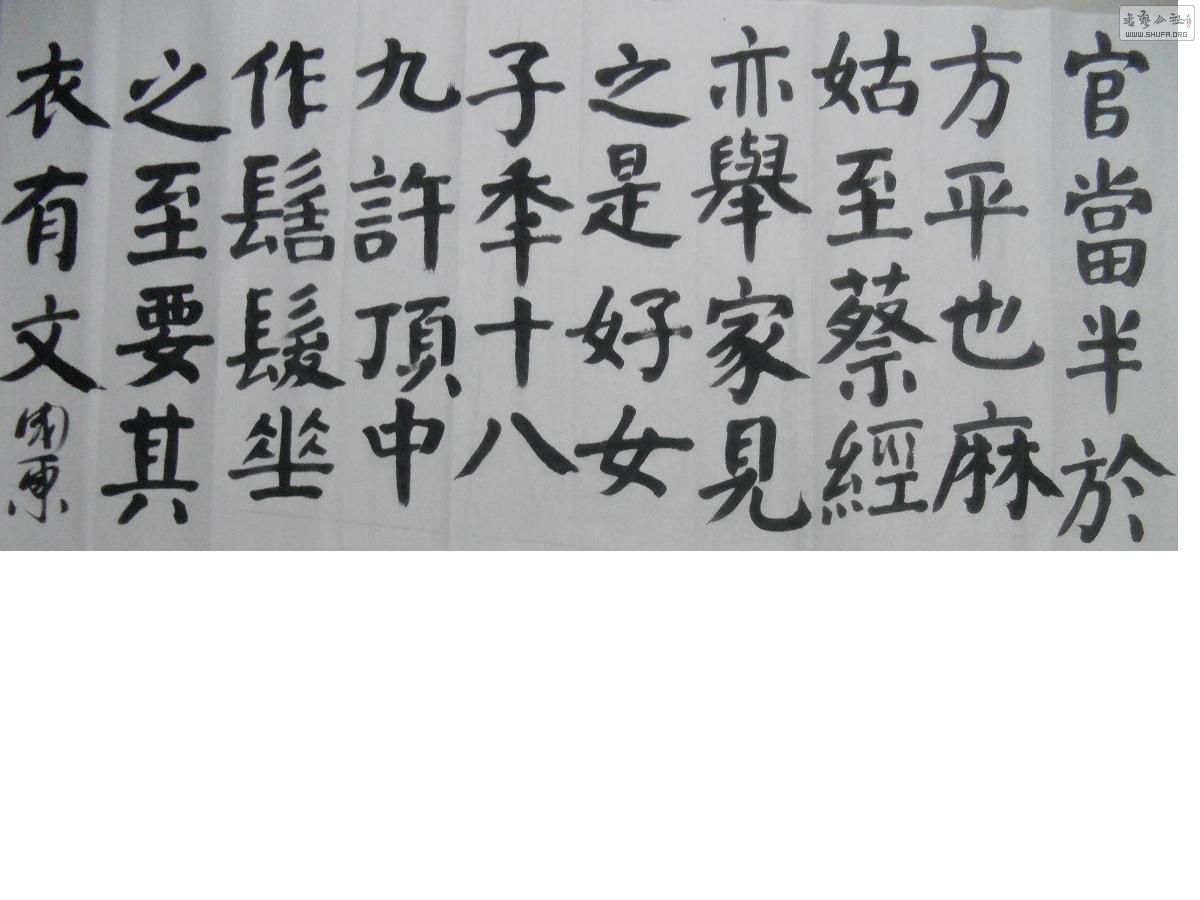 官當半於
方平也麻
姑至蔡經
亦舉家見
之是好女
子秊十八
九許頂中
作髻髮垂
之至要其
衣有文
書藝公社
WWW.SHUFA.ORG